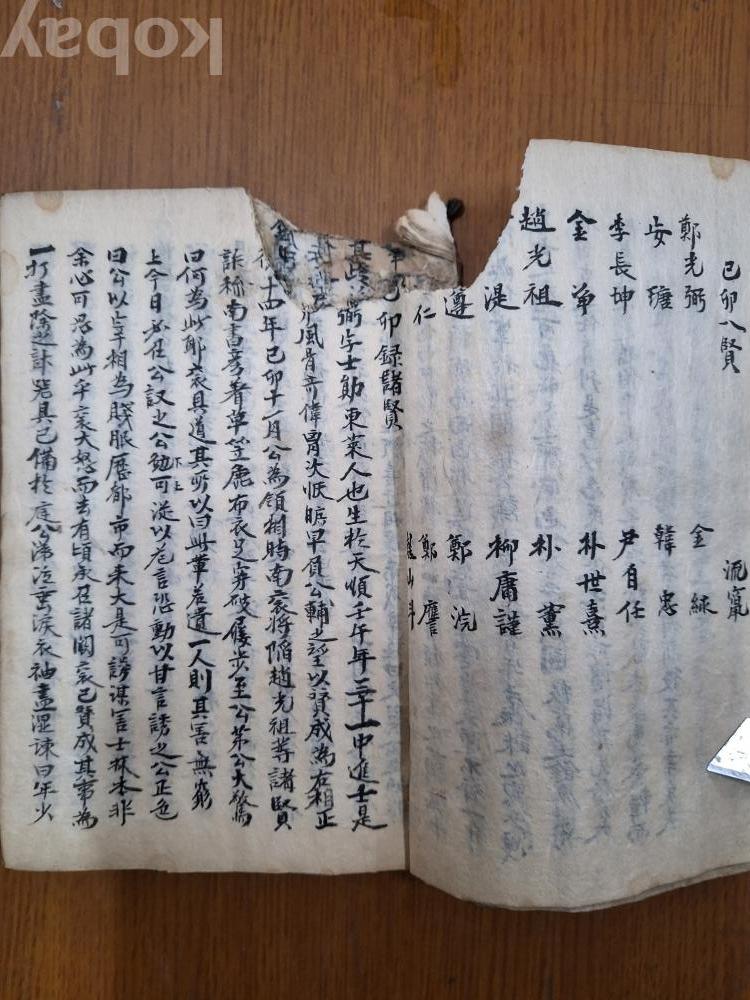 kobay
己卯八賢 流竄
鄭光弼 金絿
安瑭 韓忠
李長坤 尹自任
金淨 朴世熹
趙光祖 朴薰
湜 柳庸謹
遵 鄭浣
仁 鄭譍
己卯錄諸賢
弼字士勛東萊人也生於天順壬午年三十一中進士是
風骨奇偉胃次恢曠早負公輔之望以賛成為右相正
十四年己卯十一月公為領相時南袞將陷趙光祖等諸賢
詐称南書房着草笠麁布衣足穿破屨步至公第公大驚
曰何為此耶袞具道其所以曰此輩若遺一人則其害無窮
上今日必召公議之公勉可從以危言恐動以甘言誘之公正色
下上
曰公以宰相為賤服歷都市而来大是可謀害士林本非
余心可忍為此乎袞大怒而去有頃承召詣闕袞已賛成其事為
一打盡除之計器具已備於庭公涕泣垂淚衣袖盡湿諫曰年少